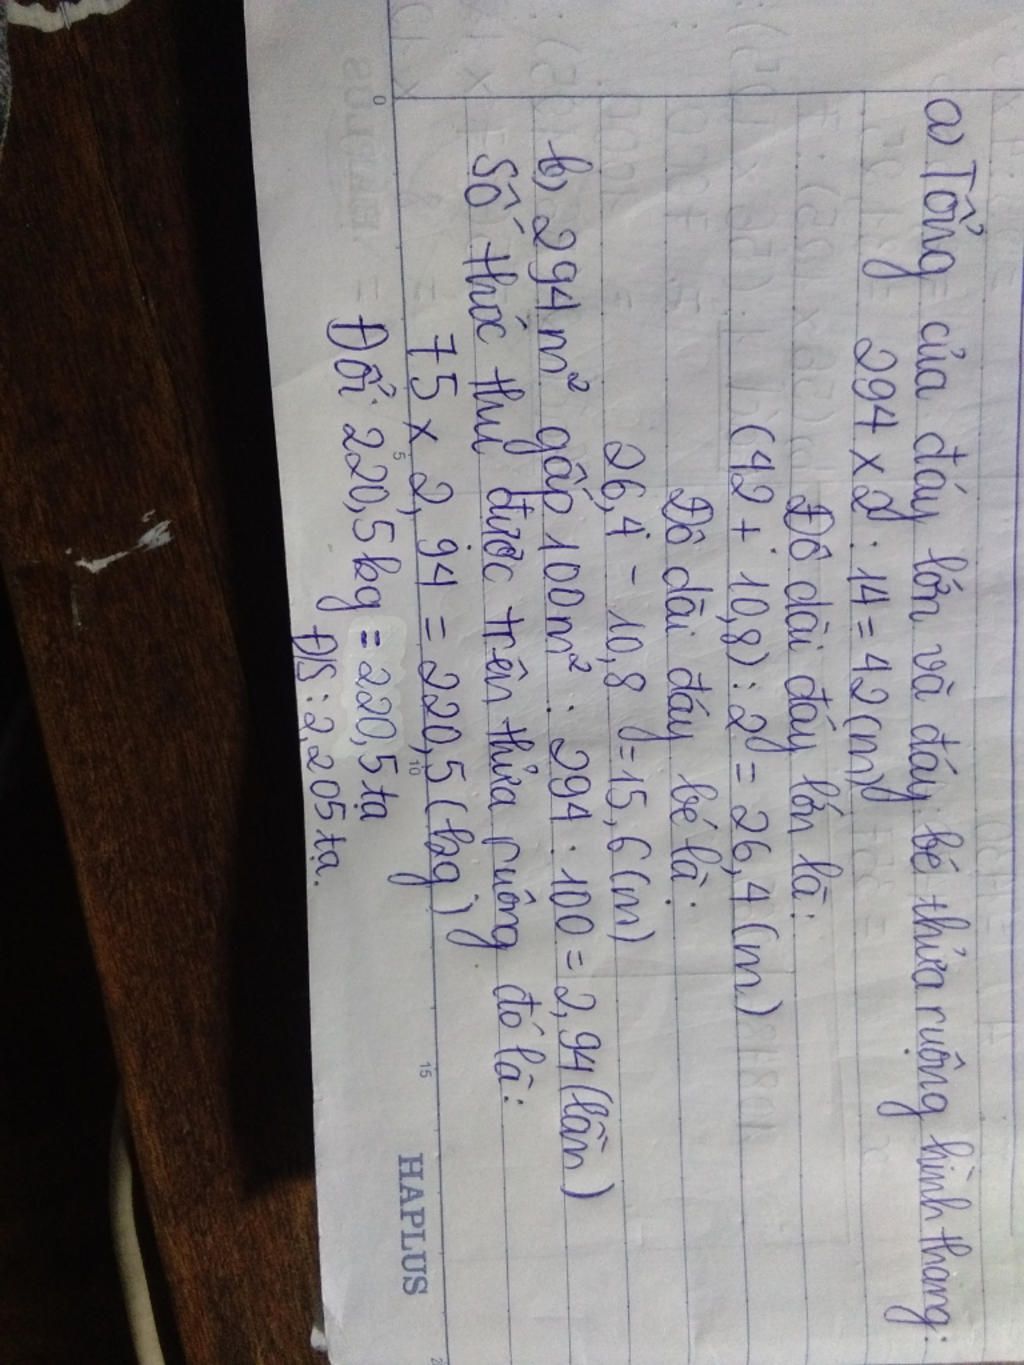 a) Tổng của đáy lớn và đáy bé thửa ruộng hình thang:
294 x 2 : 14 = 42 (m)
Độ dài đáy lớn là:
(42 + 10,8) : 2 = 26,4 (m)
Độ dài đáy bé là:
26,4 - 10,8 = 15,6 (m)
b) 294 m² gấp 100 m² : 294 : 100 = 2,94 (lần)
Số thóc thu được trên thửa ruộng đó là:
75 x 2,94 = 220,5 (kg)
Đổi 220,5 kg = 220,5 tạ
ĐS : 2,205 tạ.
0 5 10 15 2
HAPLUS